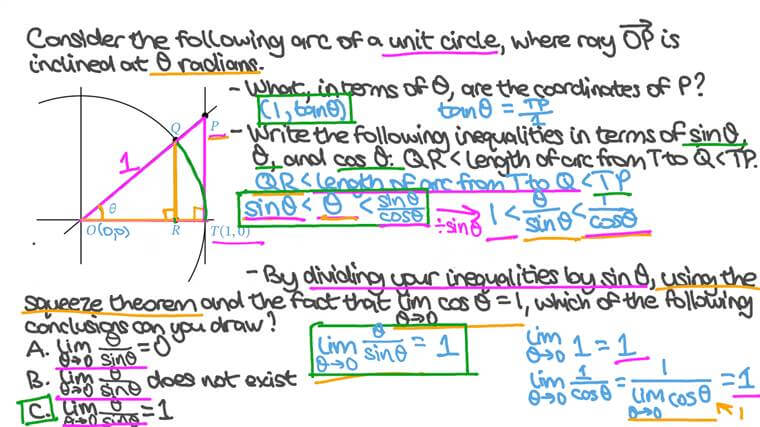 Consider the following arc of a unit circle, where ray OP is
inclined at θ radians.
- What, in terms of θ, are the coordinates of P?
(1, tanθ) tanθ = TP/1
- Write the following inequalities in terms of sinθ,
θ, and cosθ: QR < length of arc from T to Q < TP.
QR < length of arc from T to Q < TP
sinθ < θ < sinθ/cosθ ÷sinθ 1 < θ/sinθ < 1/cosθ
1
Q
P
θ
O(0,0) R T(1,0)
- By dividing your inequalities by sinθ, using the
squeeze theorem and the fact that lim θ→0 cosθ = 1, which of the following
conclusions can you draw?
A. lim θ→0 θ/sinθ = 0
B. lim θ→0 θ/sinθ does not exist
C. lim θ→0 θ/sinθ = 1
lim θ→0 θ/sinθ = 1
lim θ→0 1 = 1
lim θ→0 1/cosθ = 1/lim θ→0 cosθ = 1
1